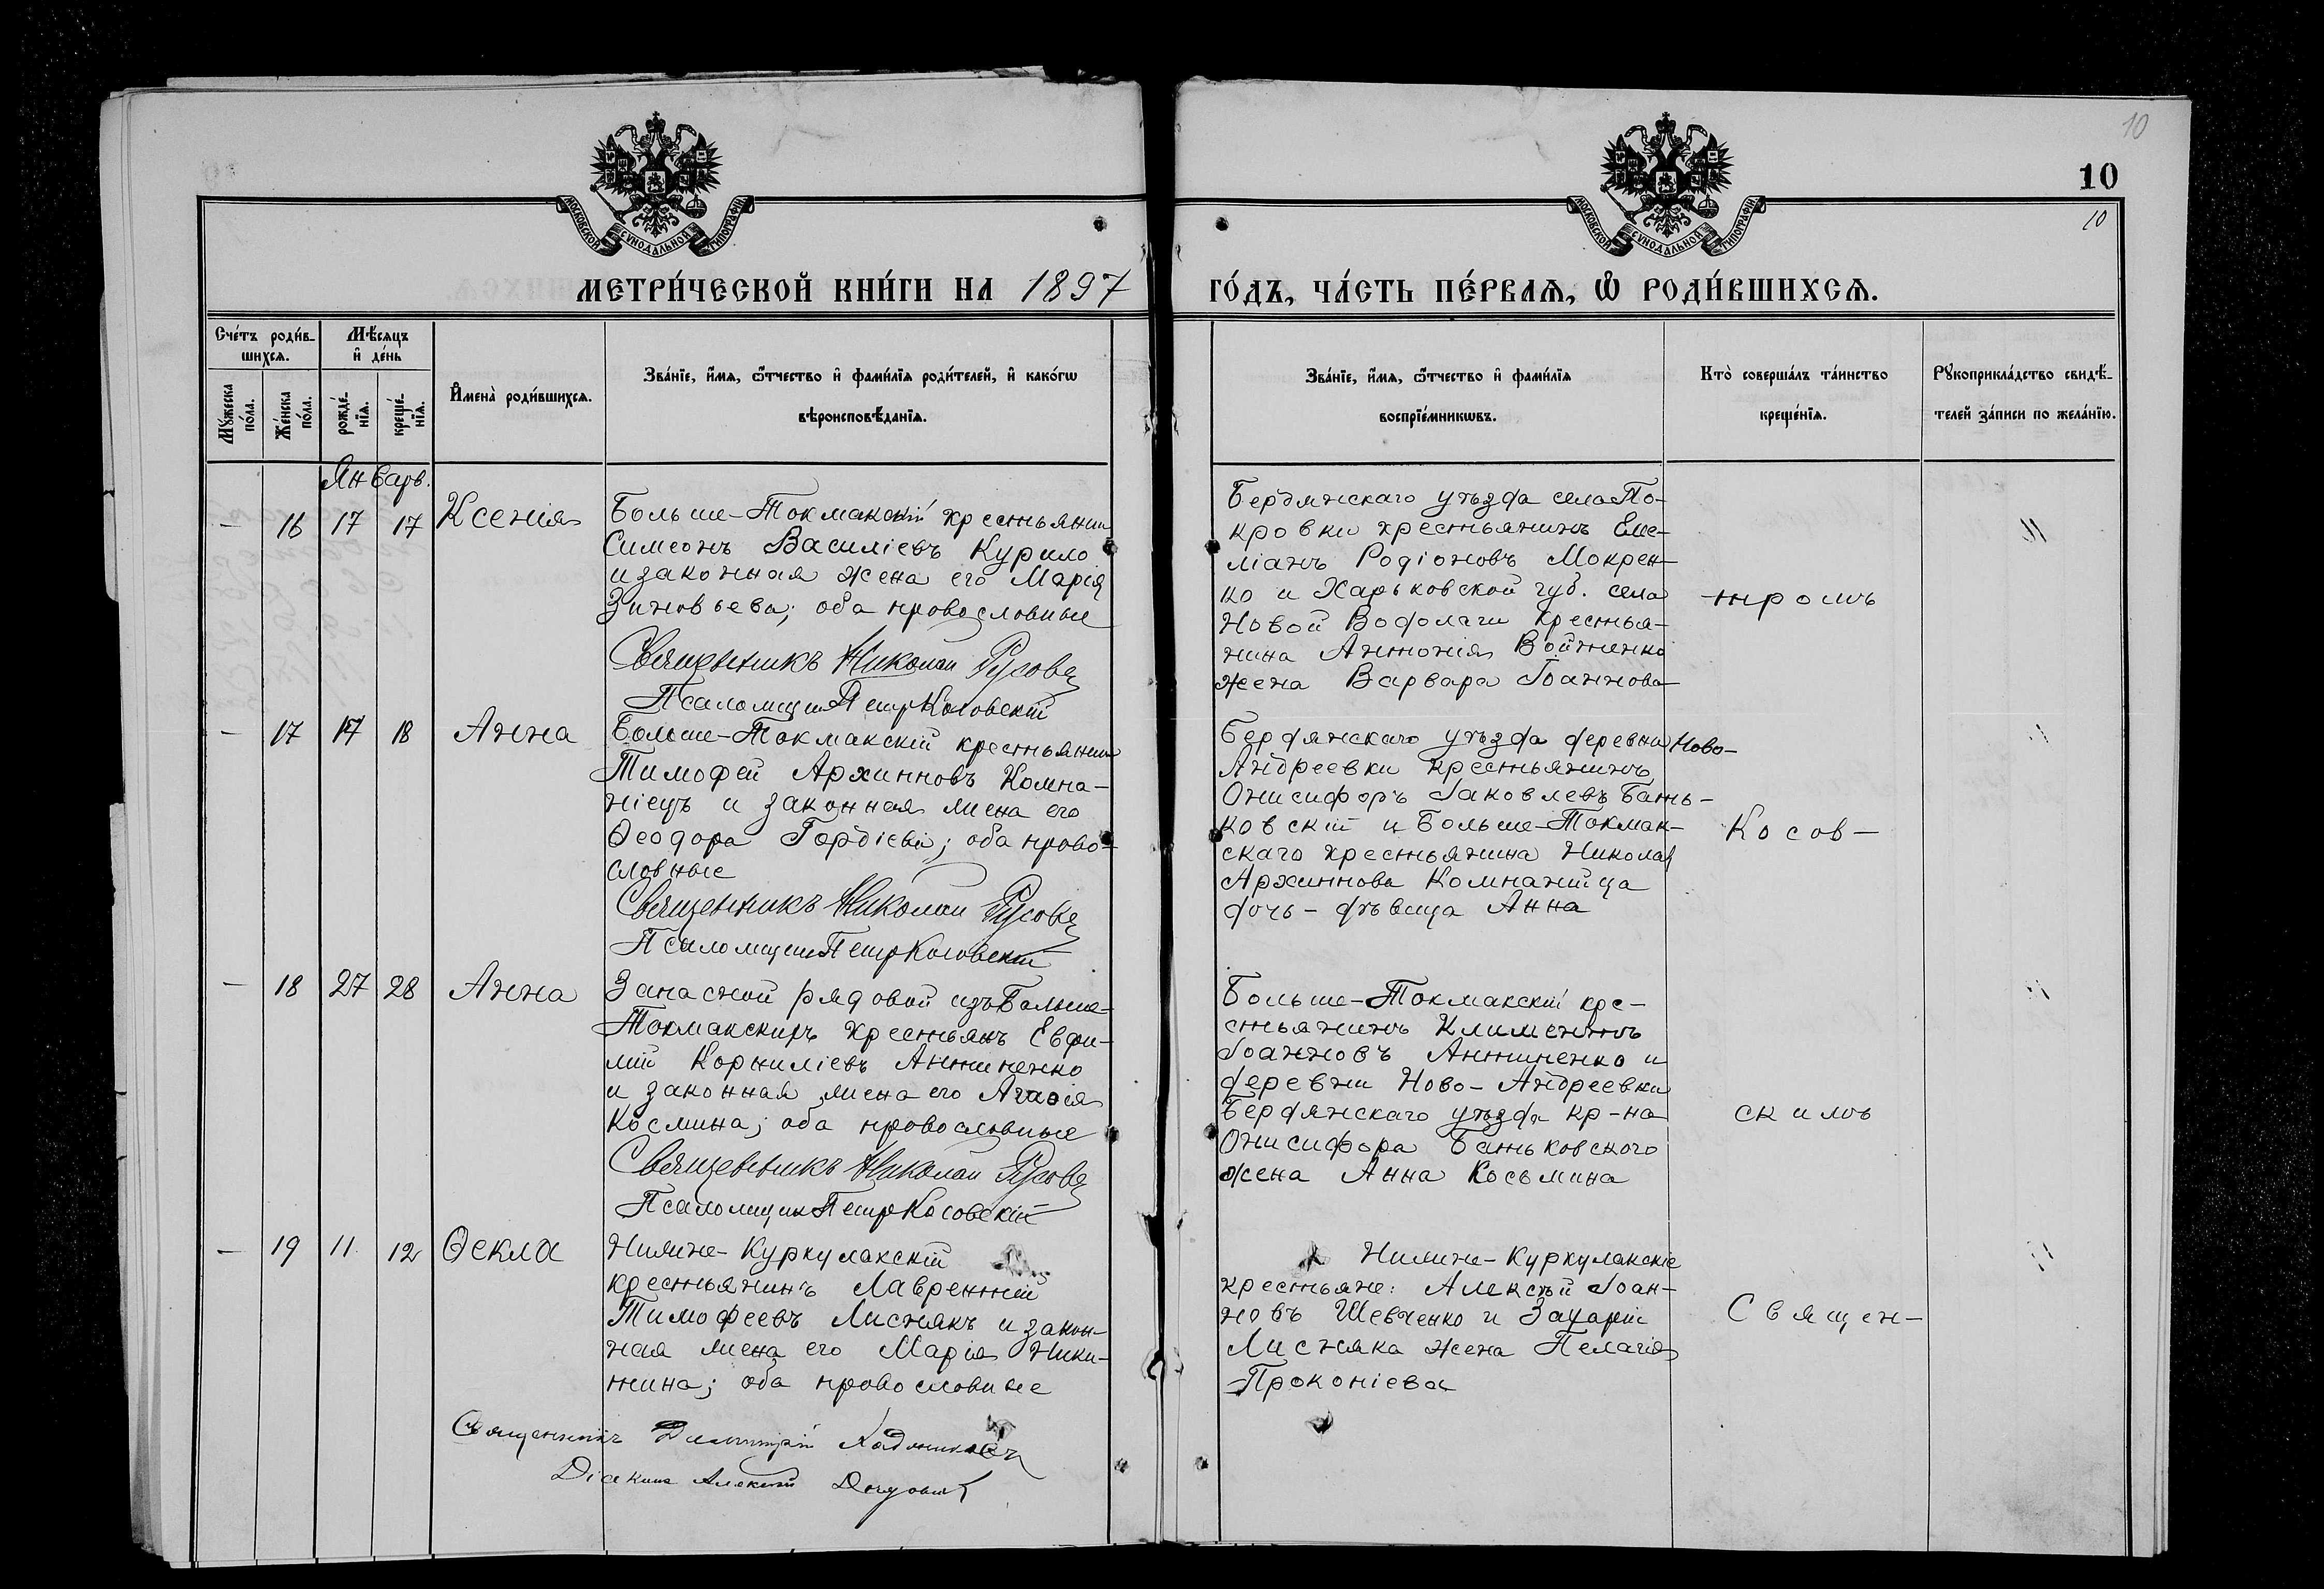 10
10
10
МОСКОВСКОЙ СѴНОДАЛЬНОЙ ТИПОГРАФІИ
МОСКОВСКОЙ СѴНОДАЛЬНОЙ ТИПОГРАФІИ
МЕТРИ́ЧЕСКОЙ КНИ́ГИ НА 1897
ГО́ДЪ, ЧА́СТЬ ПЕ́РВАѦ, Ѿ РОДИ́ВШИХСѦ.
Сче́тъ роди́в-
шихсѧ.
Мѣ́сяцъ
и҆ де́нь
Мꙋ́жеска
по́ла.
Же́нска
по́ла.
рожде́-
нїѧ.
креще́-
нїѧ.
И҆мена̀ роди́вшихсѧ.
Зва́нїе, и҆́мѧ, ѻ҆́тчество и҆ фами́лїѧ роди́телей, и҆ како́гѡ
вѣроисповѣ́данїѧ.
Зва́нїе, и҆́мѧ, ѻ҆́тчество и҆ фами́лїѧ
воспрїе́мникѡвъ.
Кто̀ соверша́лъ та́инство
креще́нїѧ.
Рꙋкоприкла́дство свидѣ́-
телей за́писи по жела́нїю.
Январь.
— 16 17 17 Ксенія
Больше-Токмакскій крестьянин
Симеонъ Василіевъ Курило
и законная жена его Марія
Зиновьева; оба православные
Священникъ Николай Русовъ
Псаломщик Петр Косовскій
Бердянскаго уѣзда села По-
кровки крестьянинъ Еме-
ліанъ Родіоновъ Мокрен-
ко и Харьковской губ. села
Новой Водолаги крестья-
нина Антонія Войтенко
жена Варвара Іоаннова
тромъ
— 17 17 18 Анна
Больше-Токмакскій крестьянин
Тимофей Архиповъ Компа-
ніецъ и законная жена его
Ѳеодора Гордіева; оба право-
славные
Священникъ Николай Русовъ
Псаломщик Петр Косовскій
Бердянскаго уѣзда деревни Ново-
Андреевки крестьянинъ
Онисифоръ Іаковлевъ Бань-
ковскій и Больше-Токмак-
скаго крестьянина Николая
Архипова Компанійца
дочь - дѣвица Анна
Косов-
— 18 27 28 Анна
Запасной рядовой изъ Больше-
Токмакскихъ крестьянъ Евфи-
мій Корниліевъ Антипенко
и законная жена его Агаѳія
Космина; оба православные
Священникъ Николай Русовъ
Псаломщик Петр Косовскій
Больше-Токмакскій кре-
стьянинъ Климентъ
Іоанновъ Антипенко и
деревни Ново-Андреевки
Бердянскаго уѣзда кр-на
Онисифора Баньковского
жена Анна Косьмина
скимъ
— 19 11 12 Ѳекла
Нижне-Куркулакскій
крестьянинъ Лаврентій
Тимофеевъ Лиснякъ и закон-
ная жена его Марія Ники-
тина; оба православные
Священникъ Димитрій
Діаконъ Алексій
Нижне-Куркулакскіе
крестьяне: Алексѣй Іоан-
новъ Шевченко и Захарія
Лисняка жена Пелагія
Прокопіева
Священ-